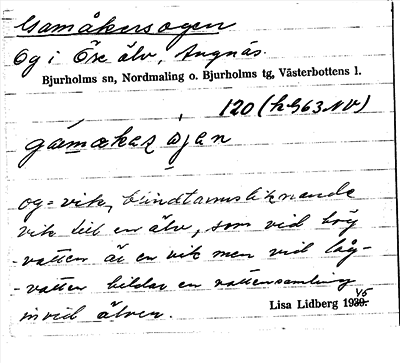 Gamåkersogen
Og i Öre älv, Angnäs.
Bjurholms sn, Nordmaling o. Bjurholms tg, Västerbottens l.
120 (k963NV)
gamakas ojen
og = vik, blindtarmsliknande
vik till en älv, som vid hög
-vatten är en vik men vid låg-
-vatten bildar en vattensamling
invid älven.
Lisa Lidberg 1939. 45